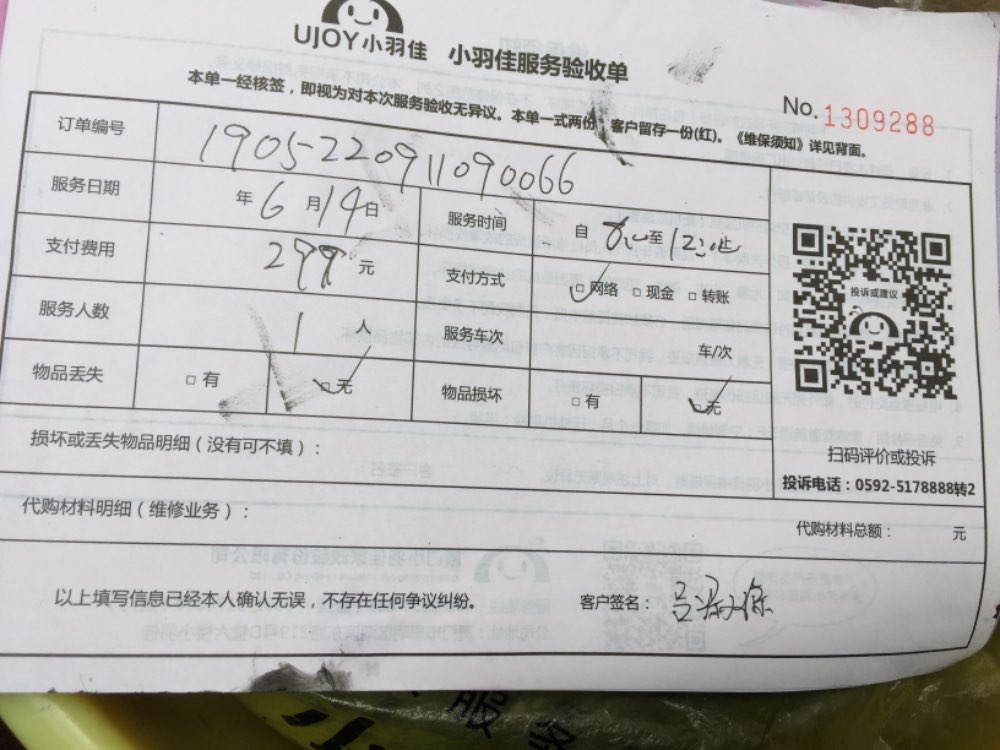 UJOY小羽佳 小羽佳服务验收单
本单一经核签，即视为对本次服务验收无异议。本单一式两份，客户留存一份(红)。《维保须知》详见背面。
No. 1309288
订单编号 1905-220911090066
服务日期 年 6 月 14 日 服务时间 自 至 止
支付费用 299 元 支付方式 □网络 □现金 □转账
服务人数 1 人 服务车次 车/次
物品丢失 □有 □无 物品损坏 □有 □无
投诉或建议
扫码评价或投诉
投诉电话：0592-5178888转2
损坏或丢失物品明细（没有可不填）：
代购材料明细（维修业务）：
代购材料总额： 元
以上填写信息已经本人确认无误，不存在任何争议纠纷。 客户签名：